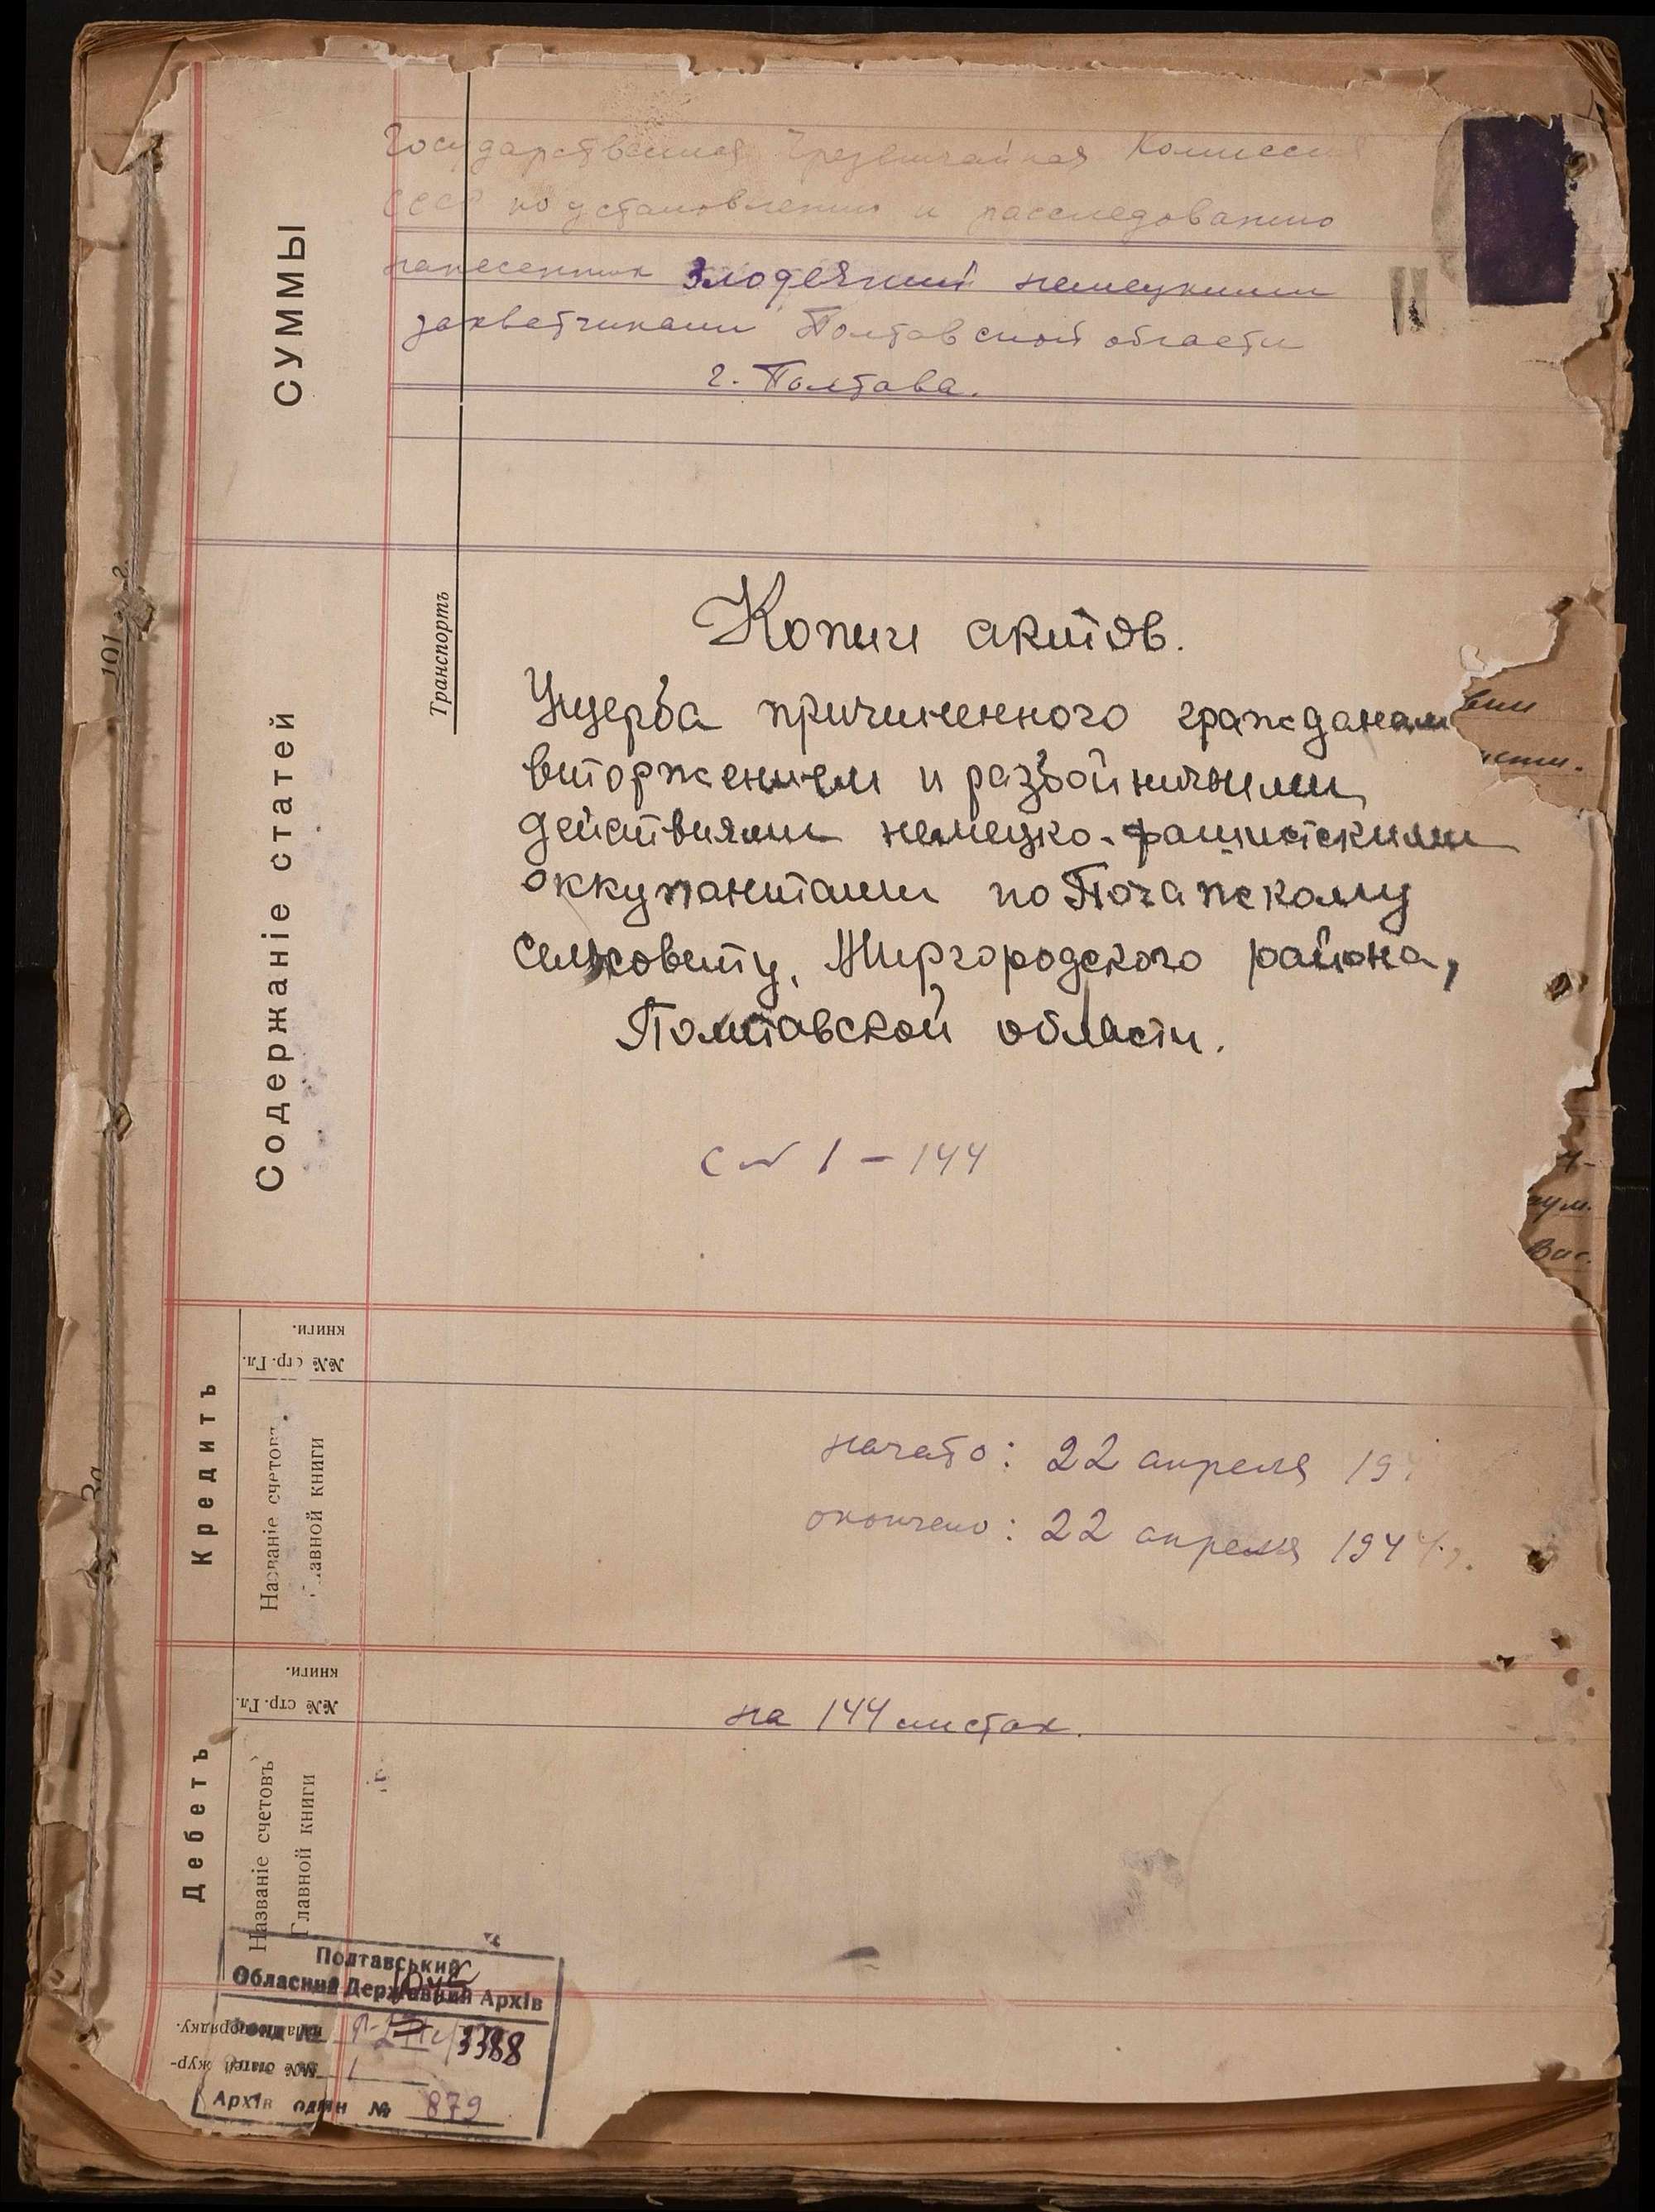 Государственная Чрезвычайная Комиссия
СССР по установлению и расследованию
нанесенных злодеяний немецкими
захватчиками Полтавской области
г. Полтава.
СУММЫ
Транспортъ
Содержаніе статей
101
Копии актов.
Ущерба причиненного гражданам
вторжением и разбойничьими
действиями немецко-фашистскими
оккупантами по Почапскому
сельсовету, Миргородского района,
Полтавской области.
с № 1 – 144
Кредитъ
№№ стр. Гл.
книги.
Названіе счетовъ
Главной книги
начато: 22 апреля 19
окончено: 22 апреля 1944 г.
на 144 листах.
Дебетъ
№№ стр. Гл.
книги.
Названіе счетовъ
Главной книги
Полтавський
Обласний Державний Архів
Фонд № 3388
1
№№ статей жур-
нала по порядку.
Архів один № 879